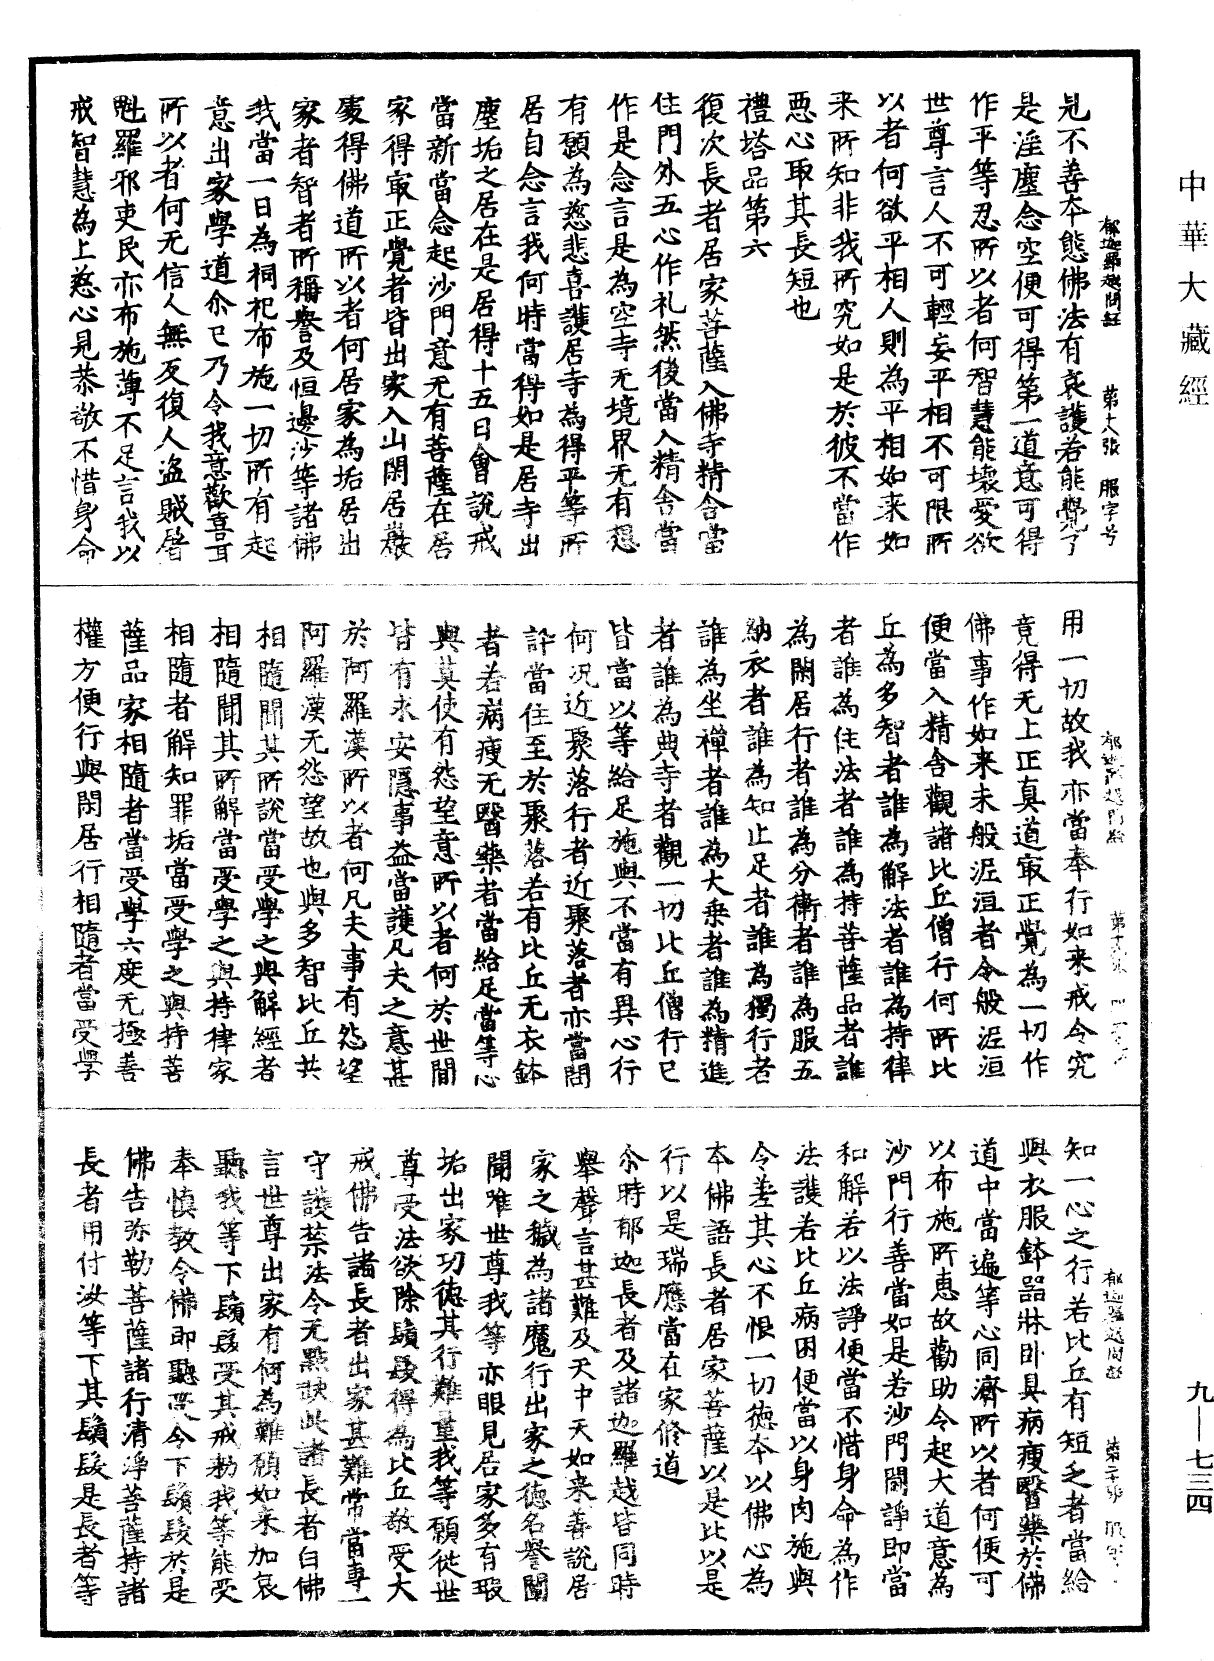 中華大藏經
郁迦羅越問經　第十八張　服字号
見不善本態佛法有哀護若能覺了
是淫塵念空便可得第一道意可得
作平等忍所以者何智慧能壞愛欲
世尊言人不可輕妄平相不可限所
以者何欲平相人則為平相如来如
来所知非我所究如是於彼不當作
惡心取其長短也
禮塔品第六
復次長者居家菩薩入佛寺精舍當
住門外五心作礼然後當入精舍當
作是念言是為空寺无境界无有想
有願為慈悲喜護居寺為得平等所
居自念言我何時當得如是居寺出
塵垢之居在是居得十五日會說戒
當新當念起沙門意无有菩薩在居
家得㝡正覺者皆出家入山閑居巖
處得佛道所以者何居家為垢居出
家者智者所稱譽及恒邊沙等諸佛
我當一日為祠祀布施一切所有起
意出家學道尒已乃令我意歡喜耳
所以者何无信人無反復人盗賊督
魁羅邪吏民亦布施薄不足言我以
戒智慧為上慈心見恭敬不惜身命
用一切故我亦當奉行如来戒令究
竟得无上正真道㝡正覺為一切作
佛事作如来未般泥洹者令般泥洹
便當入精舍觀諸比丘僧行何所比
丘為多智者誰為解法者誰為持律
者誰為住法者誰為持菩薩品者誰
為閑居行者誰為分衛者誰為服五
納衣者誰為知止足者誰為獨行者
誰為坐禪者誰為大乘者誰為精進
者誰為典寺者觀一切比丘僧行已
皆當以等給足施與不當有異心行
何况近聚落行者近聚落者亦當問
訐當住至於聚落若有比丘无衣鉢
者若病瘦无醫藥者當給足當等心
與莫使有怨望意所以者何於世間
皆有求安隱事益當護凡夫之意甚
於阿羅漢所以者何凡夫事有怨望
阿羅漢无怨望故也與多智比丘共
相隨聞其所說當受學之與解經者
相隨聞其所解當受學之與持律家
相隨者解知罪垢當受學之與持菩
薩品家相隨者當受學六度无極善
權方便行與閑居行相隨者當受學
第二十張
知一心之行若比丘有短乏者當給
與衣服鉢器牀臥具病瘦醫藥於佛
道中當遍等心同濟所以者何便可
以布施所惠故勸助令起大道意為
沙門行善當如是若沙門鬪諍即當
和解若以法諍便當不惜身命為作
法護若比丘病困便當以身肉施與
令差其心不恨一切德本以佛心為
本佛語長者居家菩薩以是比以是
行以是瑞應當在家修道
尒時郁迦長者及諸迦羅越皆同時
舉聲言甚難及天中天如来善說居
家之穢為諸魔行出家之德名譽聞
聞唯世尊我等亦眼見居家多有瑕
垢出家功德其行難量我等願從世
尊受法欲除鬚髮得為比丘敬受大
戒佛告諸長者出家甚難常當專一
守護禁法令无點缺此諸長者白佛
言世尊出家有何為難願如来加哀
聽我等下鬚髮受其戒勑我等能受
奉慎教令佛即聽受令下鬚髮於是
佛告弥勒菩薩諸行清淨菩薩持諸
長者用付汝等下其鬚髮是長者等
九—七三四